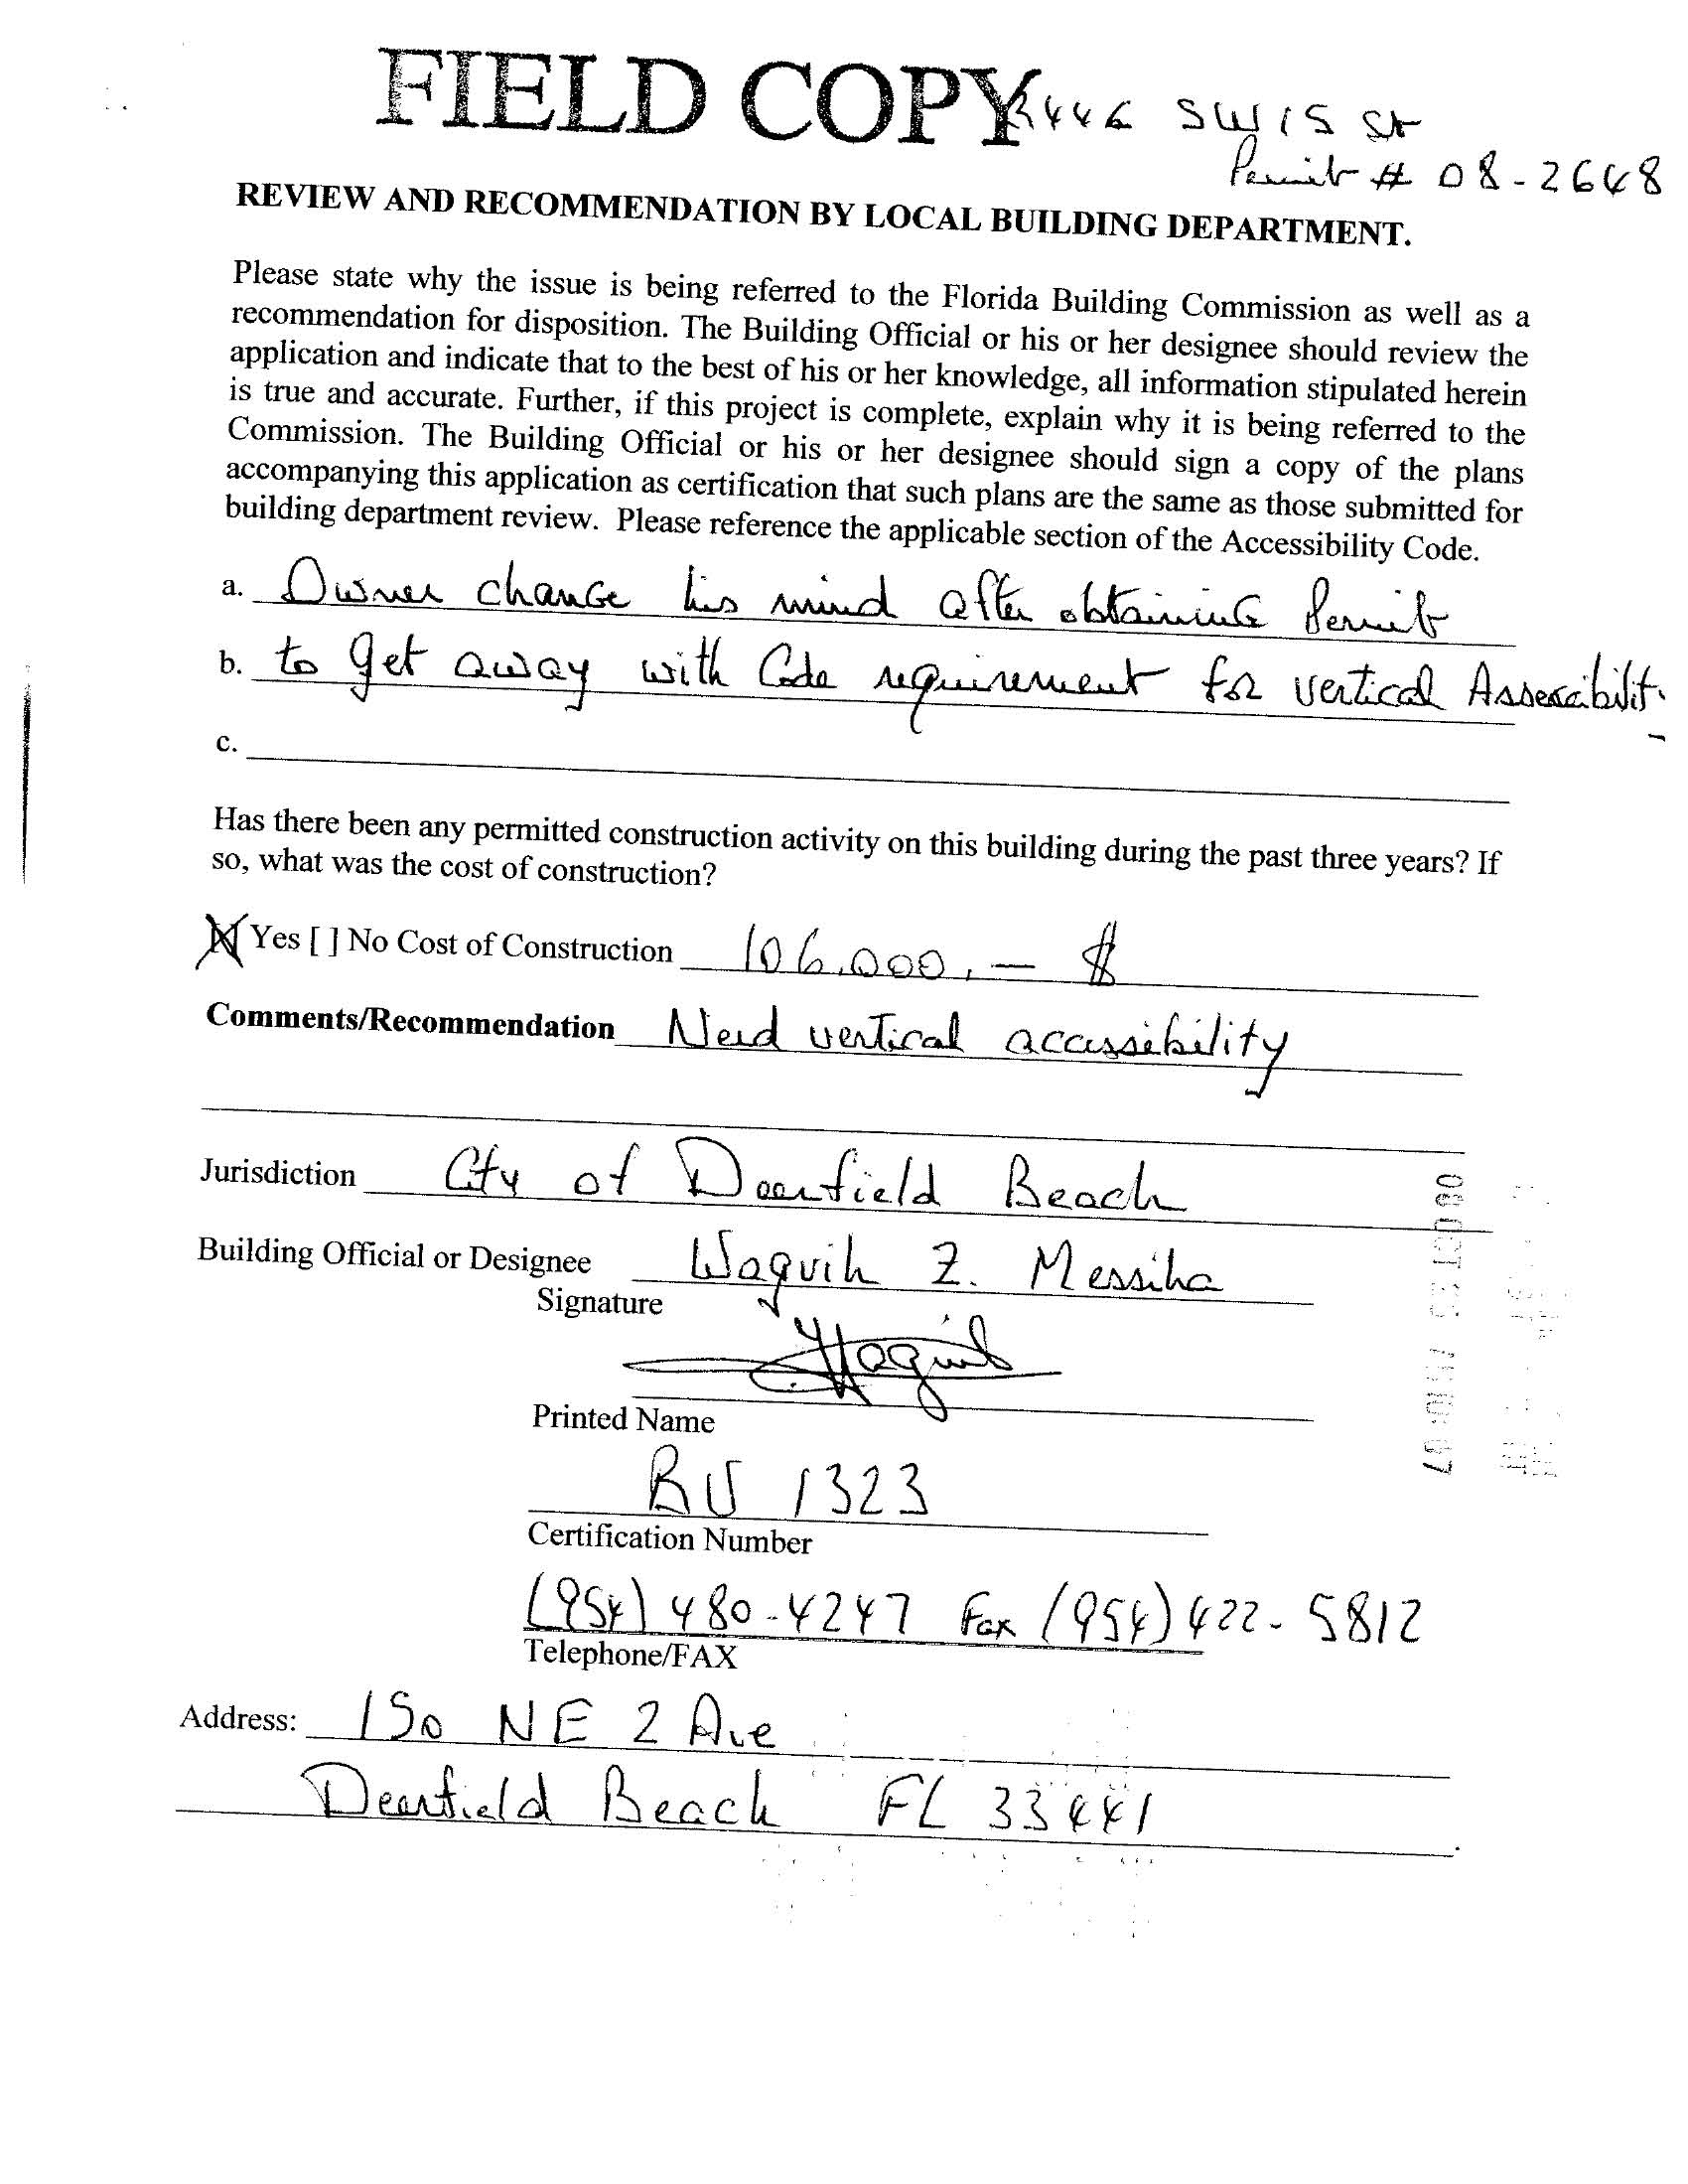 FIELD COPY
2446 SW 15 St
Permit # 08-2648
REVIEW AND RECOMMENDATION BY LOCAL BUILDING DEPARTMENT.
Please state why the issue is being referred to the Florida Building Commission as well as a
recommendation for disposition. The Building Official or his or her designee should review the
application and indicate that to the best of his or her knowledge, all information stipulated herein
is true and accurate. Further, if this project is complete, explain why it is being referred to the
Commission. The Building Official or his or her designee should sign a copy of the plans
accompanying this application as certification that such plans are the same as those submitted for
building department review. Please reference the applicable section of the Accessibility Code.
a. Owner change his mind after obtaining Permit
b. to get away with Code requirement for vertical Assescibilit.
c.
Has there been any permitted construction activity on this building during the past three years? If
so, what was the cost of construction?
[X] Yes [ ] No Cost of Construction 106,000,— $
Comments/Recommendation Need vertical accessibility
Jurisdiction City of Deerfield Beach
Building Official or Designee Waguih Z. Messiha
Signature
Waguih
Printed Name
BU 1323
Certification Number
(954) 480-4247 Fax (954) 422-5812
Telephone/FAX
Address: 150 NE 2 Ave
Deerfield Beach FL 33441